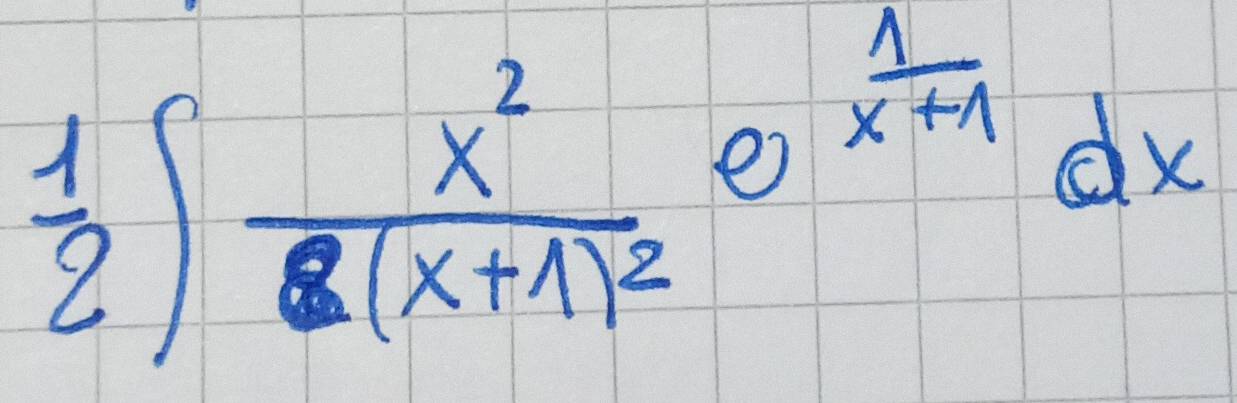 1/2 ∫ x² / (x+1)² e^(1/(x+1)) dx